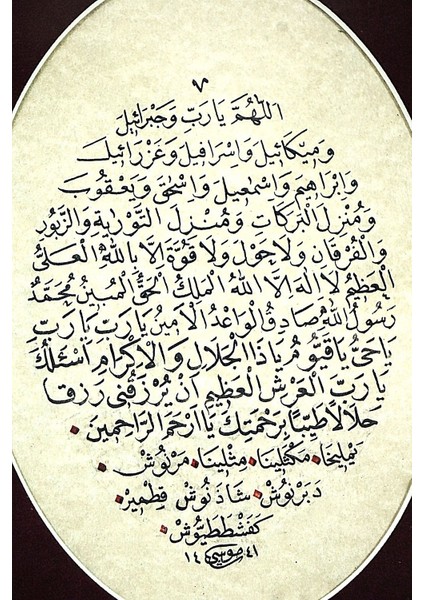 ٧
اَللّٰهُمَّ يَا رَبِّ وَجَبْرَائِيلَ
وَمِيكَائِيلَ وَاِسْرَافِيلَ وَعَزْرَائِيلَ
وَاِبْرَاهِيمَ وَاِسْمٰعِيلَ وَاِسْحٰقَ وَيَعْقُوبَ
وَمُنْزِلَ الْبَرَكَاتِ وَمُنْزِلَ التَّوْرٰيةِ وَالزَّبُورِ
وَالْفُرْقَانِ وَلَا حَوْلَ وَلَا قُوَّةَ اِلَّا بِاللّٰهِ الْعَلِىِّ
الْعَظِيمِ لَا اِلٰهَ اِلَّا اللّٰهُ الْمَلِكُ الْحَقُّ الْمُبِينُ مُحَمَّدٌ
رَسُولُ اللّٰهِ صَادِقُ الْوَعْدُ الْاَمِينُ يَا رَبِّ يَا رَبِّ
يَا حَىُّ يَا قَيُّومُ يَا ذَا الْجَلَالِ وَالْاِكْرَامِ اَسْئَلُكَ
يَا رَبَّ الْعَرْشِ الْعَظِيمِ اَنْ يَرْزُقَنِى رِزْقًا
حَلَالًا طَيِّبًا بِرَحْمَتِكَ يَا اَرْحَمَ الرَّاحِمِينَ
يَمْلِيخَا مَكْثَلِينَا مِثْلِينَا مَرْنُوشْ
دَبَرْنُوشْ شَاذَنُوشْ قِطْمِيرْ
كَفَشْطَطَيُّوشْ
١٤ موسى ٤١